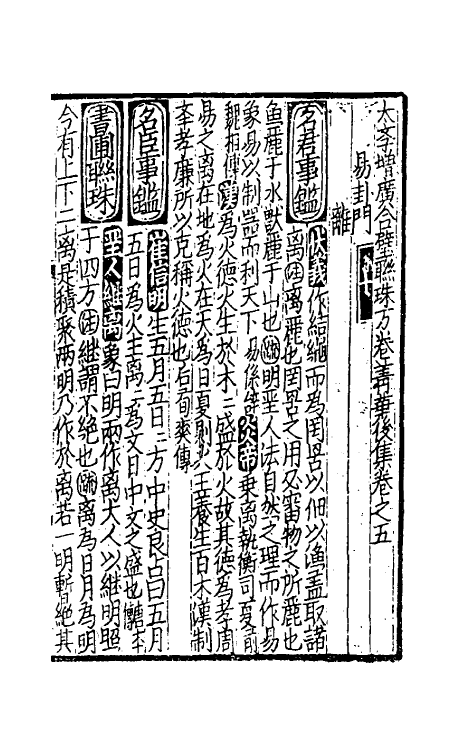 太李增廣合璧聯珠万卷菁華後集卷之五
易卦門
離
名君事鑑 伏羲作結繩而為罔罟以佃以漁蓋取諸
離注離麗也罔罟之用必審物之所麗也
鱼麗于水獸麗于山也疏明聖人法自然之理而作易
象易以制噐而利天下易係辞炎帝乗离執衡司夏前
魏相傳漢為火徳火生於木二盛於火故其徳為孝周
易之离在地為火在天為日夏則火王養生百木漢制
李孝廉所以克稱火徳也后荀爽傳
名臣事鑑 崔信明生五月五日二方中史良占曰五月
五日為火主离二為文日中文之盛也本
書郵聯珠 聖人繼离象曰明兩作离大人以继明照
于四方注继謂不绝也疏离為日月為明
今有上下二离是積聚兩明乃作於离若一明暫绝其